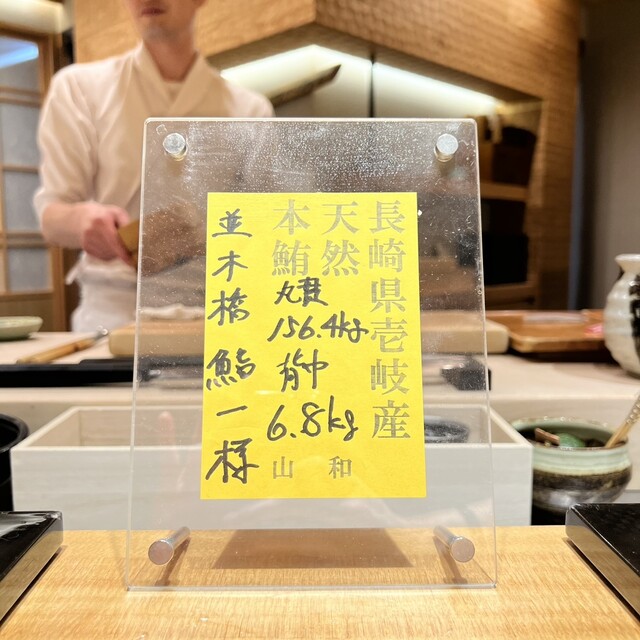 長崎県壱岐産
天然
本鮪
丸数
156.4kg
背中
6.8kg
山和
並木橋 鮨一様